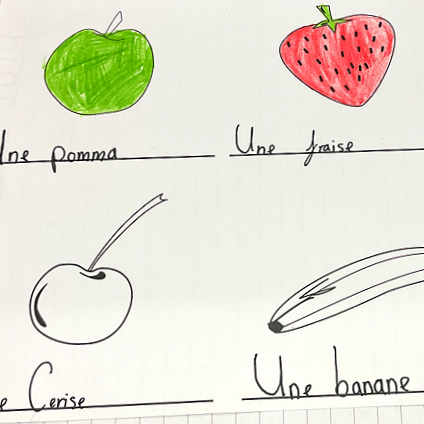 Une pomma
Une fraise
e Cerise
Une banane